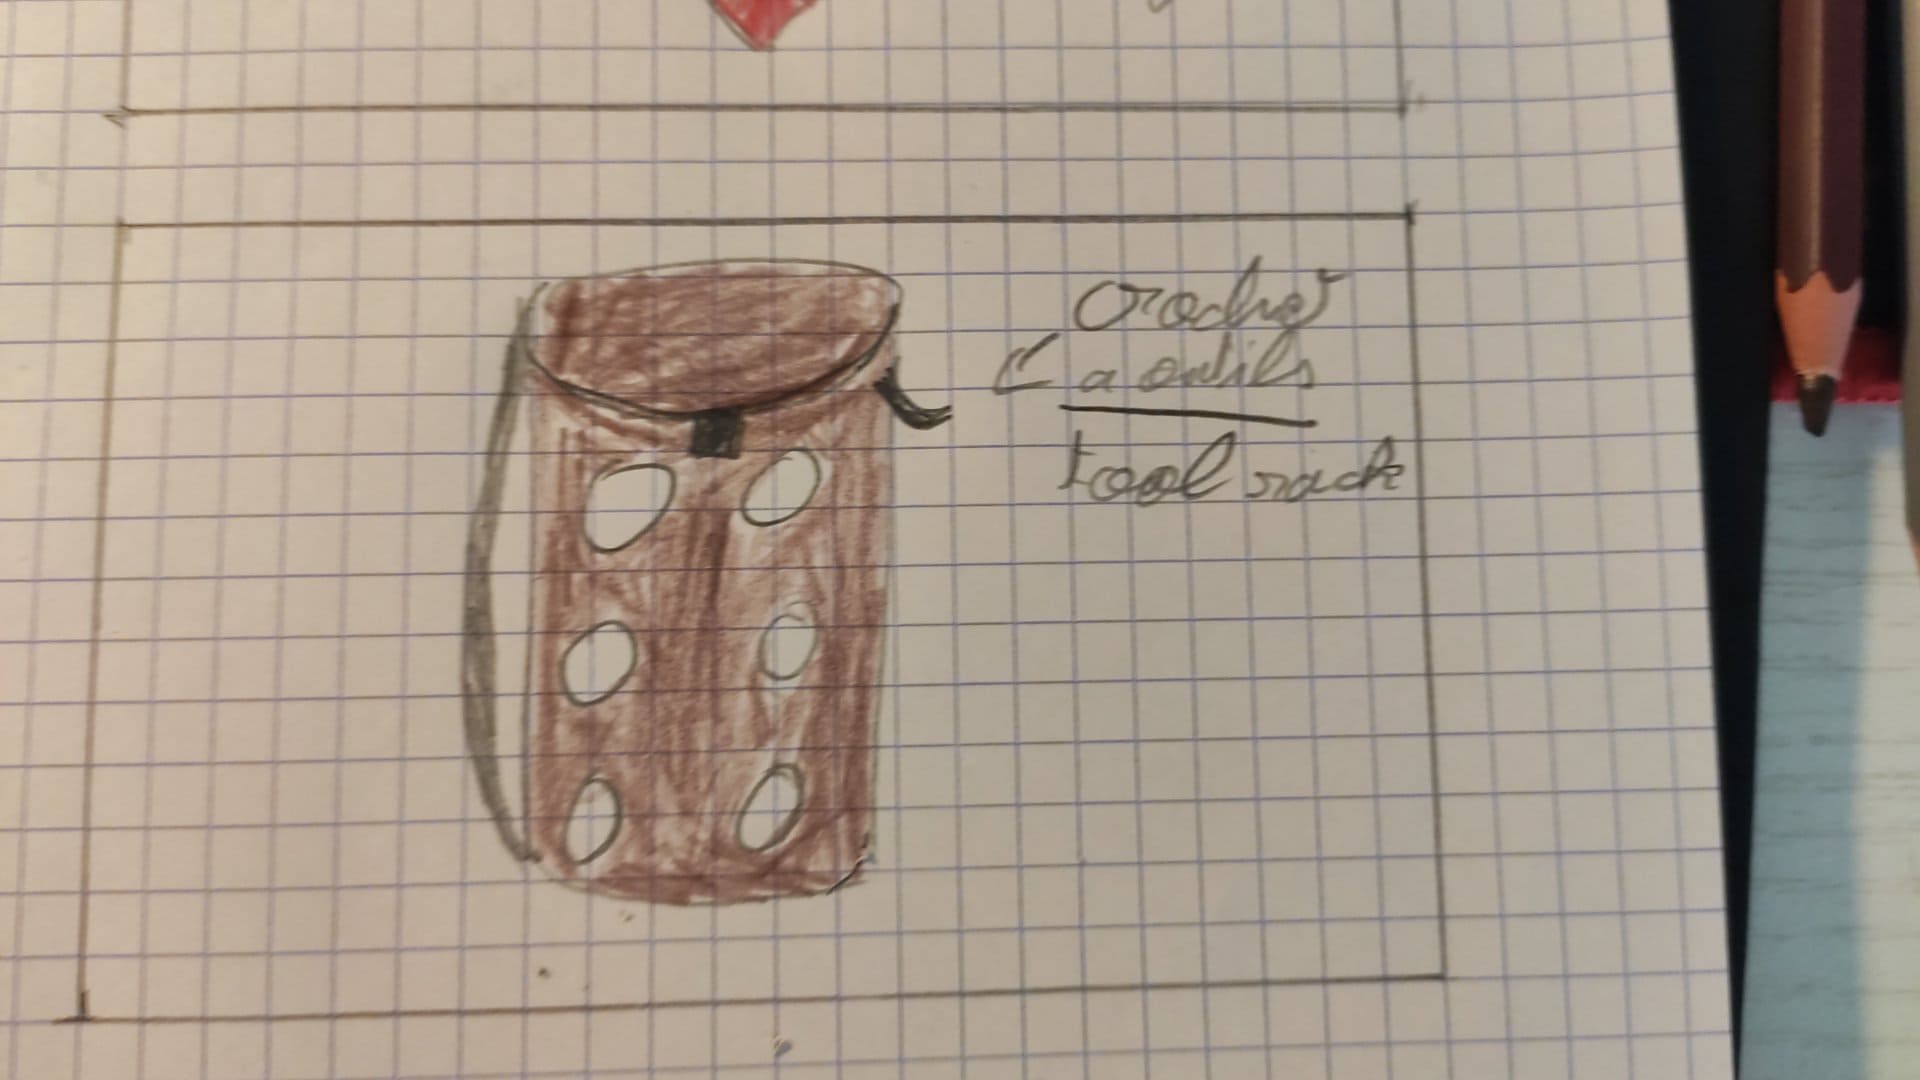 crochet
a outils
tool rack